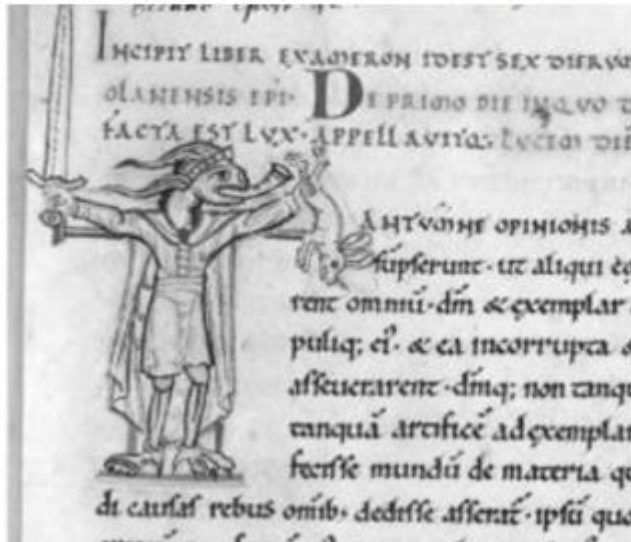 INCIPIT LIBER EXAMERON IDEST SEX DIERUM
OLANENSIS EPI· DE PRIMO DIE INQUO
FACTA EST LUX· APPELLAVITQ; LUCEM DIE
ANTUMNE OPINIONIS A
sũpserunt· ut aliqui
rent omniũ· dm̃ & exemplar
puliq; ei'· & ea incorrupta
asseuerarent· dm̃q; non tanqu
tanquã artificẽ ad exemplar
fecisse mundũ de materia qu
di causas rebus omĩb· dedisse asserat̃· ipsũ quo